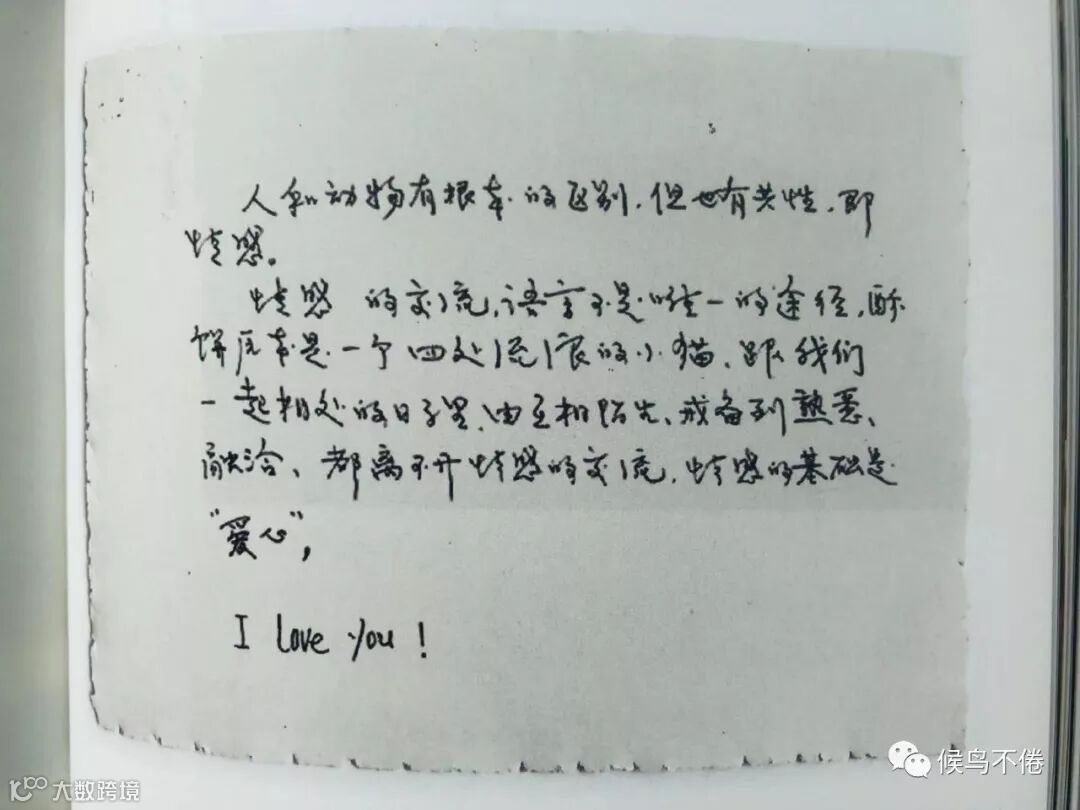 人和动物有根本的区别,但也有共性,即
情感。
情感 的交流,语言不是唯一的途径,酥
饼原本是一个四处流浪的小猫、跟我们
一起相处的日子里,由互相陌生、戒备到熟悉、
融洽、都离不开情感的交流,情感的基础是
“爱心”,
I love you!
候鸟不倦
10100 大数跨境